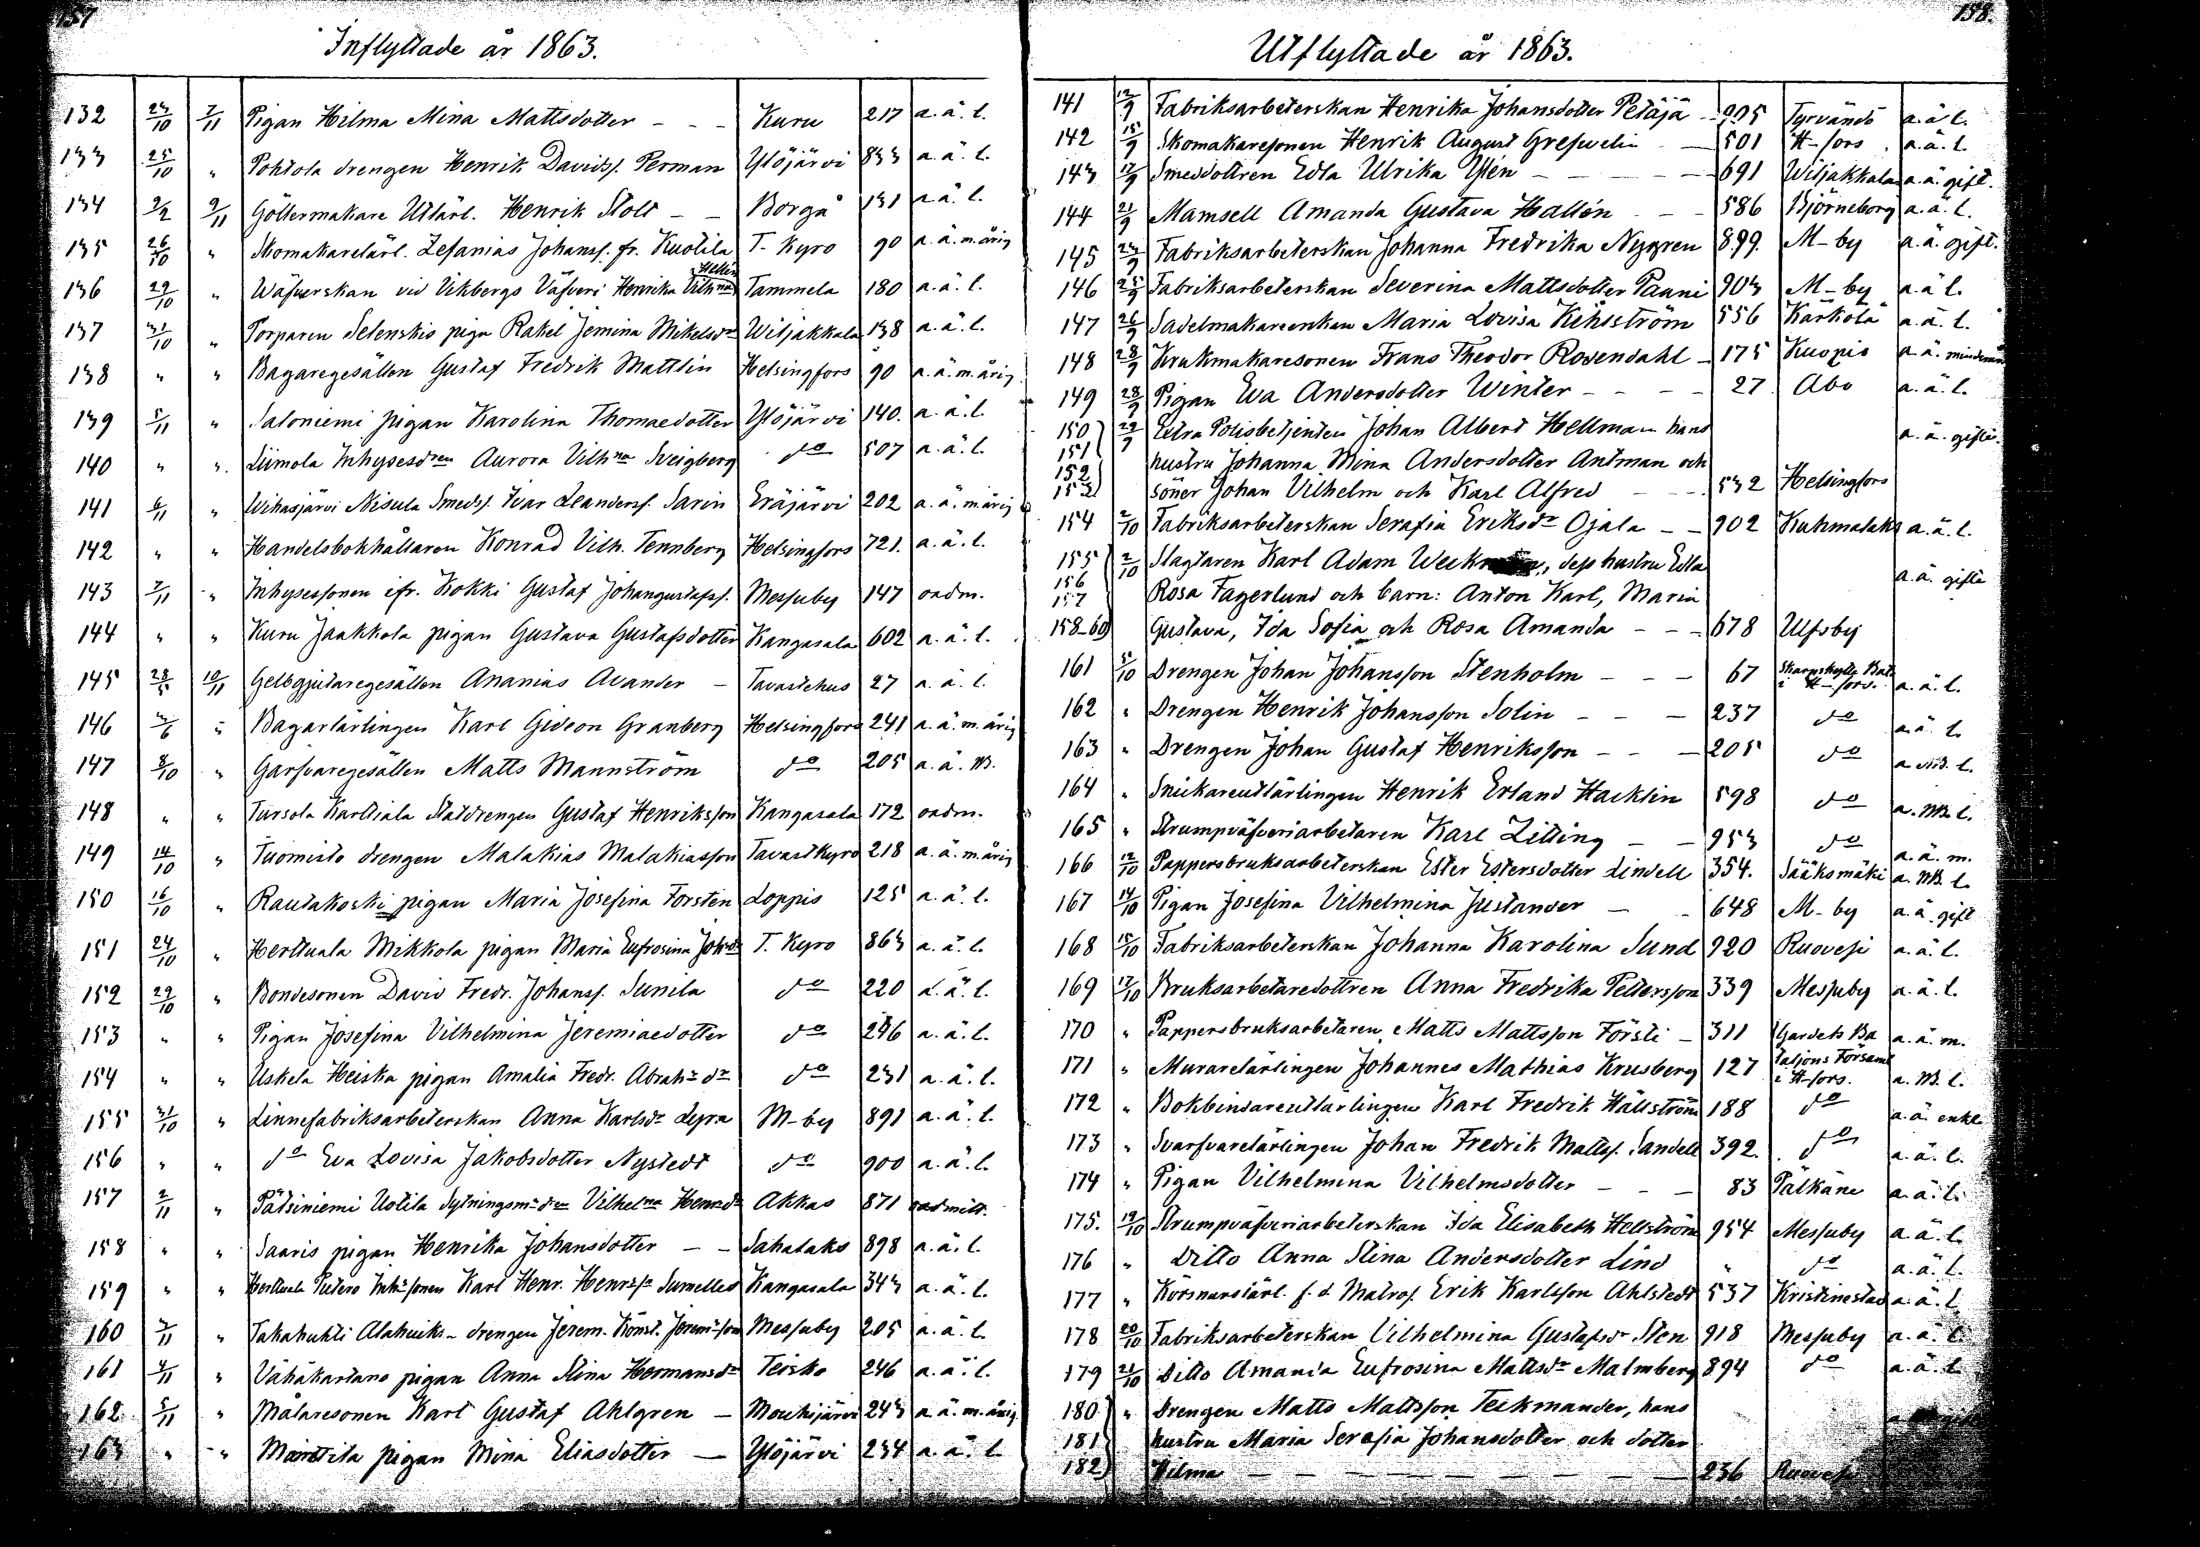 157
Inflyttade år 1863.
132 24/10 7/11 Pigan Hilma Mina Mattsdotter - - - Kuru 217 a.ä.l.
133 25/10 " Pohtola drengen Henrik Davidss. Perman Ylöjärvi 833 a.ä.l.
134 2/2 9/11 Göllermakare Utlärl. Henrik Stolt - - Borgå 131 a.ä.l.
135 26/10 " Skomakarelärl. Zefanias Johanss. fr. Kuotila T. Kyro 90 a.ä.m.årig
Hellin
136 29/10 " Wäfverskan vid Vikbergs Väfveri Henrika Vilhna Tammela 180 a.ä.l.
137 31/10 " Torparen Selenskis piga Rakel Jemina Mikelsdr Wiljakkala 138 a.ä.l.
138 " " Bagaregesällen Gustaf Fredrik Mattlin Helsingfors 90 a.ä.m.årig
139 5/11 " Saloniemi pigan Karolina Thomaedotter Ylöjärvi 140. a.ä.l.
140 " " Liimola Inhysesdren Aurora Vilhna Sveigberg do 507 a.ä.l.
141 6/11 " Wihasjärvi Nisula Smedss. Ivar Leanderss. Sarin Eräjärvi 202 a.ä.m.årig
142 " " Handelsbokhållaren Konrad Vilh. Tennberg Helsingfors 721. a.ä.l.
143 7/11 " Inhysessonen ifr. Kokki Gustaf Johangustafss. Messuby 147 oadm.
144 " " Kuru Jaakkola pigan Gustava Gustafsdotter Kangasala 602 a.ä.l.
145 28/5 10/11 Gelbgjutaregesällen Ananias Avander - Tavastehus 27 a.ä.l.
146 3/6 " Bagarlärlingen Karl Gideon Granberg Helsingfors 241 a.ä.m.årig
147 8/10 " Garfvaregesällen Matts Mannström do 205 a.ä.NB.
148 " " Tursola Karttiala Statdrengen Gustaf Henriksson Kangasala 172 oadm.
149 14/10 " Tuomisto drengen Malakias Malakiasson Tavastkyro 218 a.ä.m.årig
150 16/10 " Rautakoski pigan Maria Josefina Forsten Loppis 125 a.ä.l.
151 24/10 " Herttuala Mikkola pigan Maria Eufrosina Johsdr T. Kyro 863 a.ä.l.
152 29/10 " Bondesonen David Fredr. Johanss. Sunila do 220 a.ä.l.
153 " " Pigan Josefina Vilhelmina Jeremiaedotter do 246 a.ä.l.
154 " " Uskela Heiska pigan Amalia Fredr. Abrahsdr do 231 a.ä.l.
155 31/10 " Linnefabriksarbeterskan Anna Karlsdr Lyra M-by 891 a.ä.l.
156 " " do Eva Lovisa Jakobsdotter Nystedt do 900 a.ä.l.
157 2/11 " Pätsiniemi Uotila Sytningsm dren Vilhelna Henrdr Akkas 871 oadmitt.
158 " " Saaris pigan Henrika Johansdotter - - Sahalaks 898 a.ä.l.
159 " " Herttuala Karl Henr. Henrss Sumelled Kangasala 343 a.ä.l.
160 3/11 " Takahuhti Alahuiks- drengen Jerem. Konst. Jeremsson Messuby 205 a.ä.l.
161 4/11 " Vähäkartano pigan Anna Stina Hermansdr Teisko 246 a.ä.l.
162 5/11 " Målaresonen Karl Gustaf Ahlgren - Mouhijärvi 243 a.ä.m.årig
163 " " Mänttila pigan Mina Eliasdotter - Ylöjärvi 234 a.ä.l.
158.
Utflyttade år 1863.
141 12/9 Fabriksarbeterskan Henrika Johansdotter Petäjä - 905 Tyrvändö a.ä.l.
142 15/9 Skomakaresonen Henrik August Greswelin - 501 H-fors. a.ä.l.
143 17/9 Smeddottren Edla Ulrika Ylén - - - - - 691 Wiljakkala a.ä.gift.
144 21/9 Mamsell Amanda Gustava Hallén - - 586 Björneborg a.ä.l.
145 24/9 Fabriksarbeterskan Johanna Fredrika Nygren 899. M-by a.ä.gift.
146 25/9 Fabriksarbeterskan Severina Mattsdotter Paani 903 M-by a.ä.l.
147 26/9 Sadelmakareenkan Maria Lovisa Kihlström 556 Kärkölä a.ä.l.
148 28/9 Krukmakaresonen Frans Theodor Rosendahl - 175 Kuopio a.ä.
149 28/9 Pigan Eva Andersdotter Winter - - - - 27 Abo a.ä.l.
150 29/9 Extra Polisbetjenten Johan Albert Hellman hans a.ä.gifte.
151 hustru Johanna Mina Andersdotter Antman och
152 153 söner Johan Vilhelm och Karl Alfred - - - 532 Helsingfors
154 2/10 Fabriksarbeterskan Serafia Eriksdr Ojala - - 902 Kuhmalaks a.ä.l.
155 2/10 Slagtaren Karl Adam dess hustru Edla
156 157 Rosa Fagerlund och barn: Anton Karl, Maria a.ä.gifte
158-60 Gustava, Ida Sofia och Rosa Amanda - - - 678 Ulfsby
161 5/10 Drengen Johan Johansson Stenholm - - - 67 Skarpskytte Bat. i H-fors. a.ä.l.
162 " Drengen Henrik Johansson Solin - - - 237 do a.ä.l.
163 " Drengen Johan Gustaf Henriksson - - - 205 do a.NB.l.
164 " Snickareutlärlingen Henrik Erland Hacklin 598 do a.NB.l.
165 " Strumpväfveriarbetaren Karl Zitting - - 953 do a.ä.m.
166 12/10 Pappersbruksarbeterskan Ester Estersdotter Lindell 354. Sääksmäki a.NB.l.
167 14/10 Pigan Josefina Vilhelmina Justander - - 648 M-by a.ä.gift
168 15/10 Fabriksarbeterskan Johanna Karolina Sund 920 Ruovesi a.ä.l.
169 17/10 Bruksarbetaredottren Anna Fredrika Pettersson 339 Messuby a.ä.l.
170 " Pappersbruksarbetaren Matts Mattsson Försti - 311 Gardets Ba a.ä.m.
171 " Murarelärlingen Johannes Mathias Krusberg 127 taljons Församl i H-fors. a.NB.l.
172 " Bokbindareutlärlingen Karl Fredrik Hällström 188 do a.ä.enkl.
173 " Svarfvarelärlingen Johan Fredrik Matss. Sandell 392. do a.ä.l.
174 " Pigan Vilhelmina Vilhelmsdotter - - - 83 Pälkäne a.ä.l.
175. 19/10 Strumpväfveriarbeterskan Ida Elisabeth Hellström 954 Messuby a.ä.l.
176 " Ditto Anna Stina Andersdotter Lind " do a.ä.l.
177 " Körsnärslärl. f.d. Matros. Erik Karlsson Ahlstedt 537 Kristinestad a.ä.l.
178 20/10 Fabriksarbeterskan Vilhelmina Gustafsdr Sten 918 Messuby a.ä.l.
179 21/10 Ditto Amanda Eufrosina Mattsdr Malmberg 894 do a.ä.l.
180 " Drengen Matts Mattsson Teckmander, hans
181 hustru Maria Serafia Johansdotter och dotter
182 Hilma - - - - - - - - 236 Ruovesi